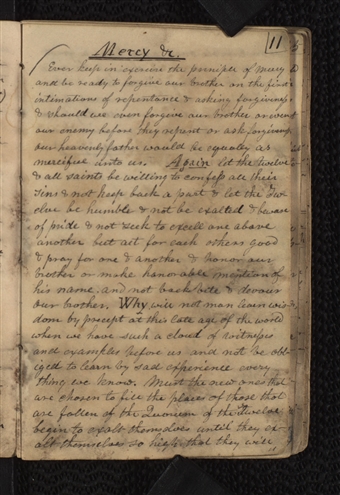 11
Mercy &c.
Ever keep in exercise the principle of mercy
and be ready to forgive our brother on the first
intimations of repentance & asking forgiveness
& should we even forgive our brother or even
our enemy before they repent or ask forgiveness
our heavenly father would be equally as
merciful unto us. Again let the Twelve
& all saints be willing to confess all their
sins & not keep back a part & let the Tw-
elve be humble & not be exalted & beware
of pride & not seek to excell one above
another but act for each others good
& pray for one & another & honor our
brother or make honorable mention of
his name, and not backbite & devour
our brother. Why will not man learn wis-
dom by precept at this late age of the world
when we have such a cloud of witnesses
and examples before us and not be obl-
iged to learn by sad experience every
thing we know. Must the new ones that
are chosen to fill the places of those that
are fallen of the Quorum of the Twelve
begin to exalt themselves until they ex-
alt themselves so high that they will